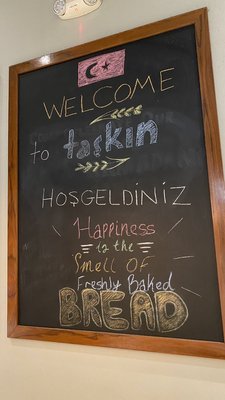 WELCOME
to taşkın
HOŞGELDİNİZ
Happiness
is the
Smell Of
Freshly Baked
BREAD